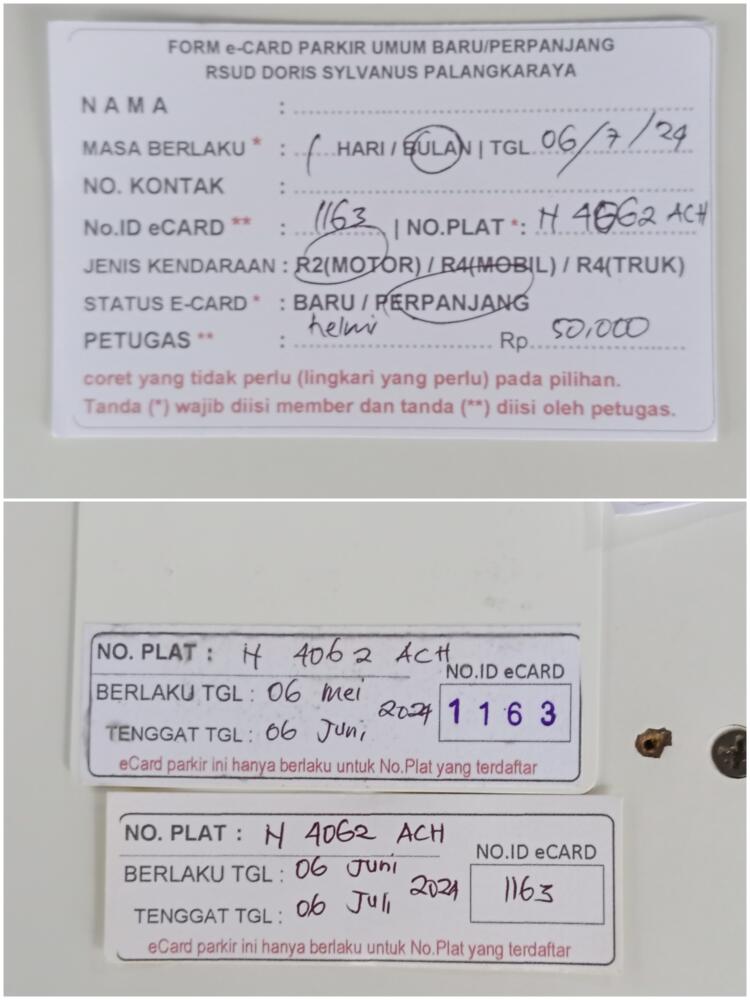 FORM e-CARD PARKIR UMUM BARU/PERPANJANG
RSUD DORIS SYLVANUS PALANGKARAYA
NAMA :
MASA BERLAKU * : 1 HARI / BULAN | TGL 06/7/24
NO. KONTAK :
No.ID eCARD ** : 1163 | NO.PLAT *: N 4062 ACH
JENIS KENDARAAN : R2(MOTOR) / R4(MOBIL) / R4(TRUK)
STATUS E-CARD * : BARU / PERPANJANG
PETUGAS ** : helmi Rp. 50,000
coret yang tidak perlu (lingkari yang perlu) pada pilihan.
Tanda (*) wajib diisi member dan tanda (**) diisi oleh petugas.
NO. PLAT : N 4062 ACH
NO.ID eCARD
BERLAKU TGL : 06 mei
2024 1163
TENGGAT TGL : 06 Juni
eCard parkir ini hanya berlaku untuk No.Plat yang terdaftar
NO. PLAT : N 4062 ACH
NO.ID eCARD
BERLAKU TGL : 06 Juni
2024 1163
TENGGAT TGL : 06 Juli
eCard parkir ini hanya berlaku untuk No.Plat yang terdaftar